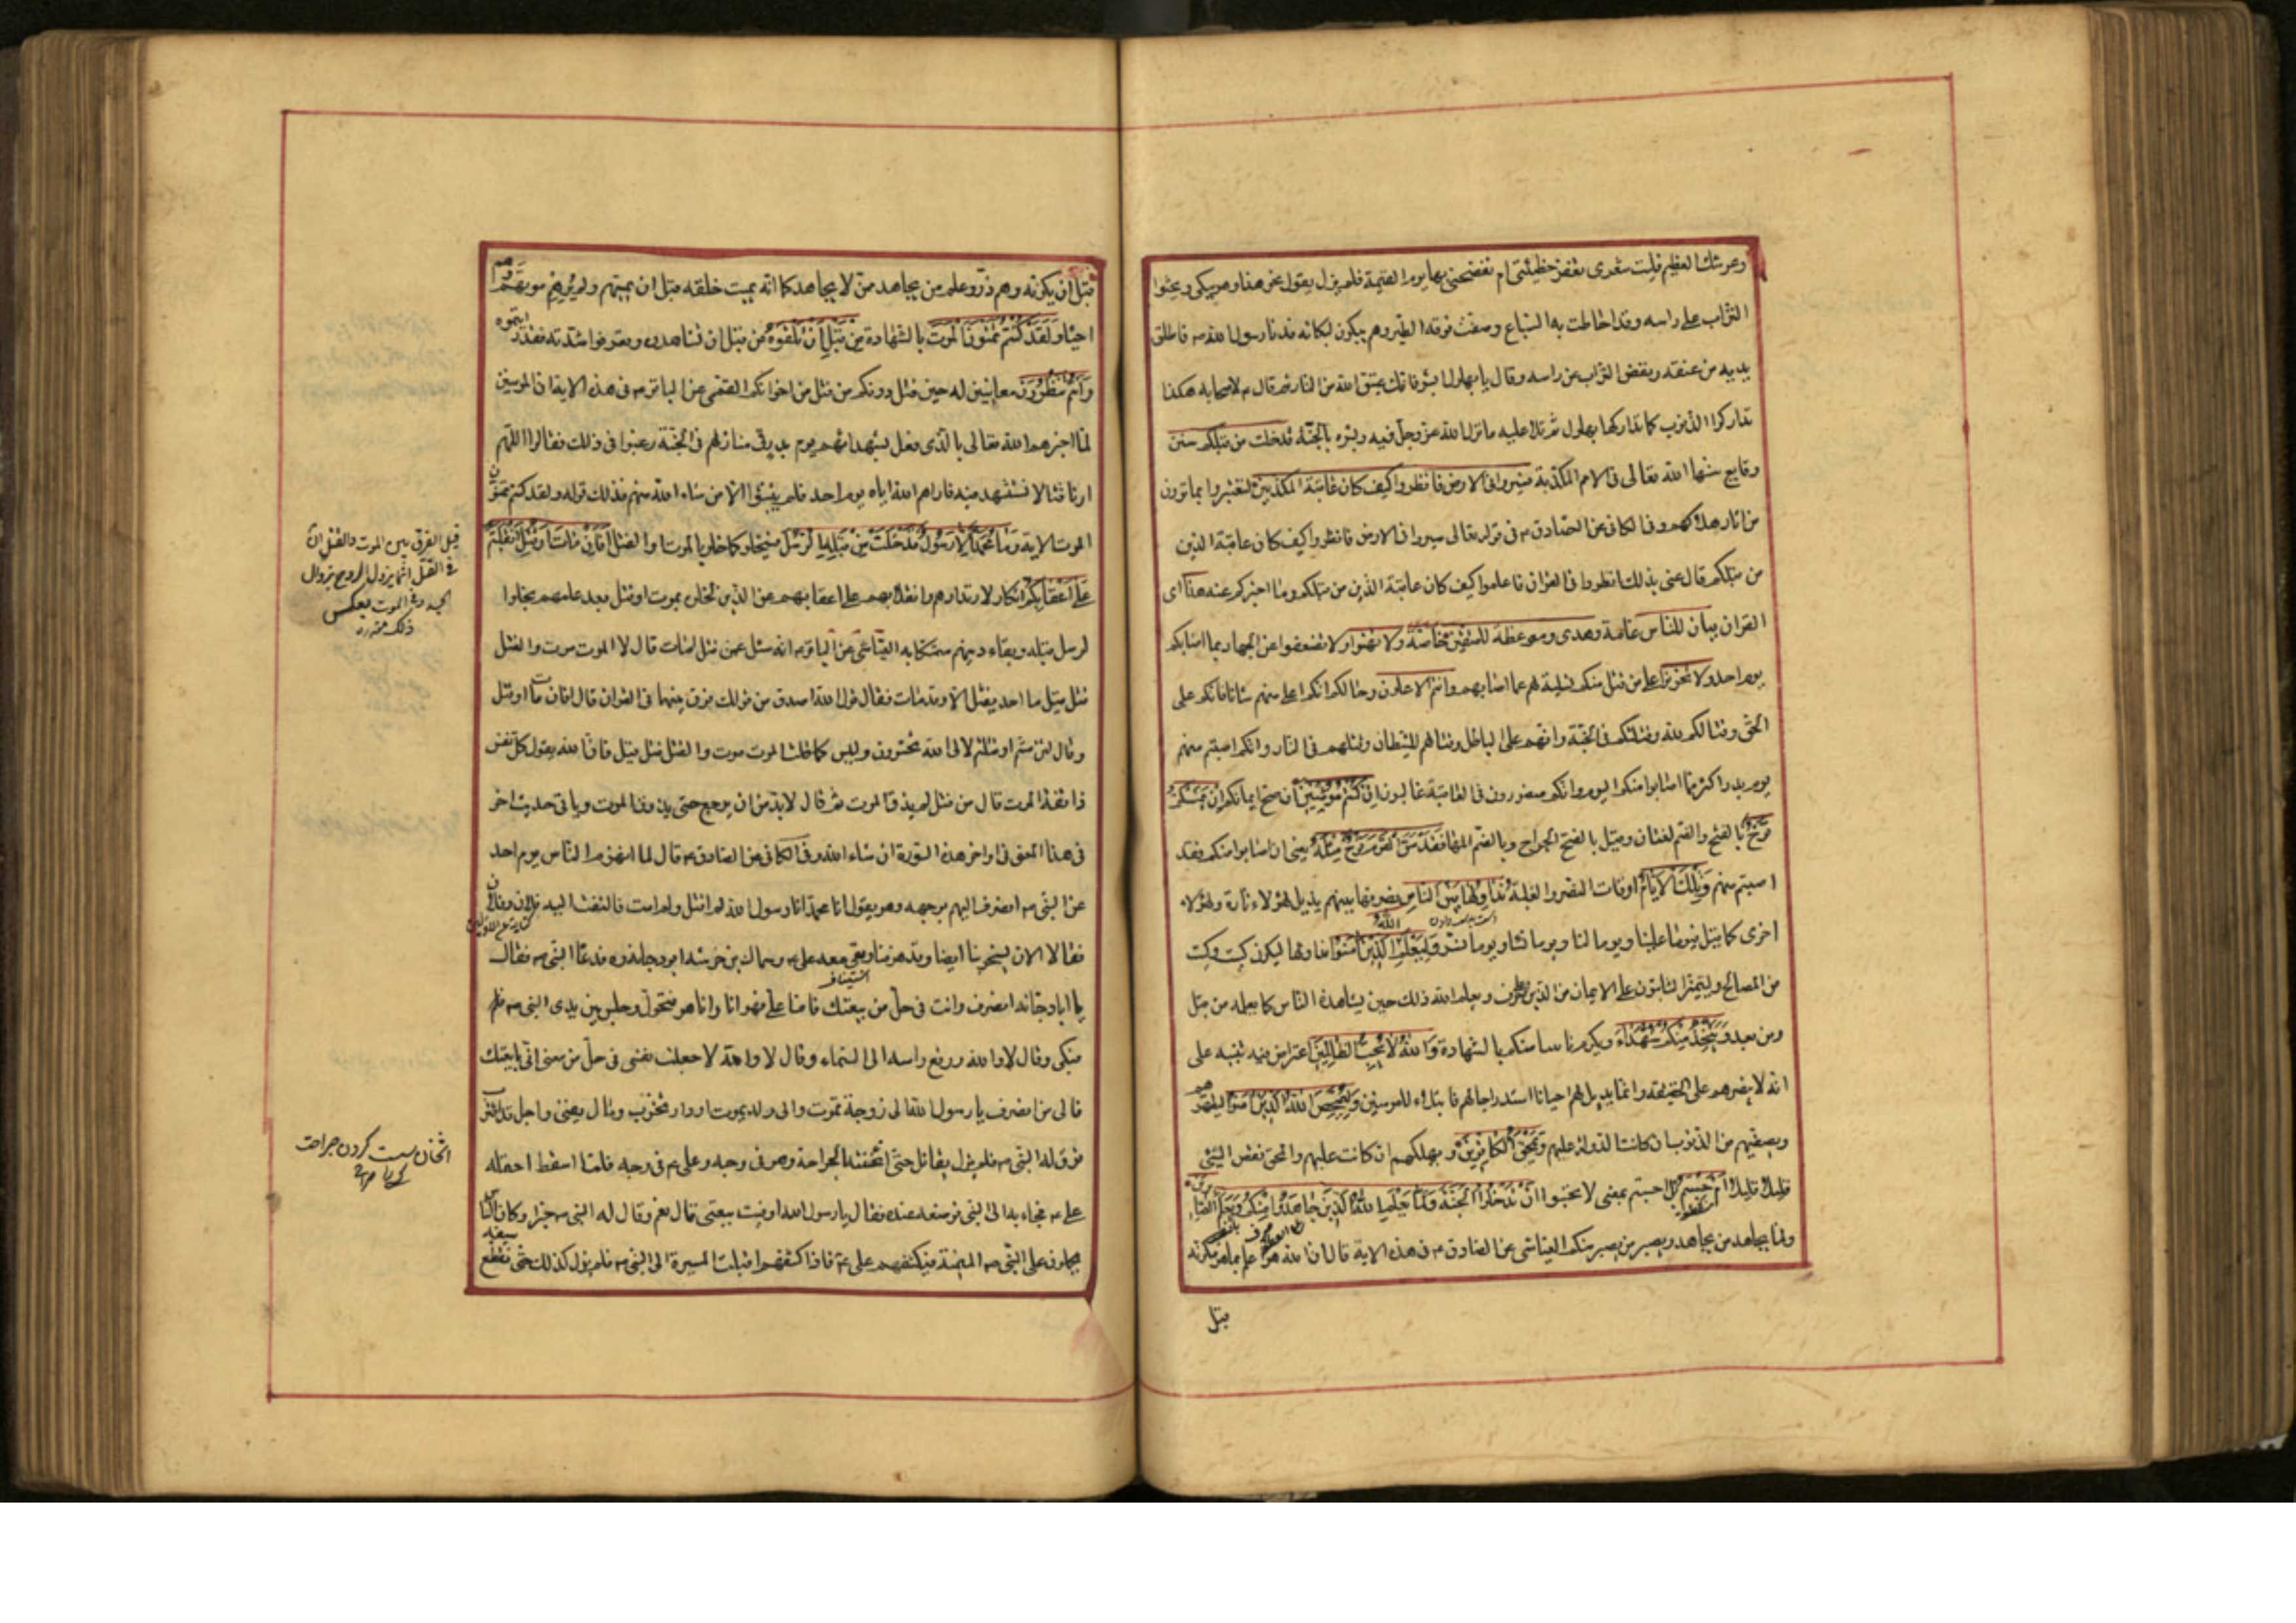 وعرشك العظيم فليت شعرى تغفر خطيئتى ام تفضحنى بها يوم القيمة فلم يزل يقول نحو هذا وهو يبكى ويحثوا
التراب على راسه وقد احاطت به السباع وصفت فوقه الطير وهم يبكون لبكائه فدنا رسول الله ص فاطلق
يديه من عنقه ونفض التراب عن راسه وقال يا بهلول ابشر فانك عتيق الله من النار ثم قال ع لاصحابه هكذا
تداركوا الذنوب كما تداركها بهلول ثم تلا عليه ما نزل الله عز وجل فيه وبشره بالجنة قد خلت من قبلكم سنن
وقايع سنها الله تعالى فى الامم المكذبة فسيروا فى الارض فانظروا كيف كان عاقبة المكذبين لتعتبروا بما ترون
من اثار هلاكهم وفى الكافى عن الصادق ع فى قوله تعالى سيروا فى الارض فانظروا كيف كان عاقبة الذين
من قبلكم قال عنى بذلك انظروا فى القران فاعلموا كيف كان عاقبة الذين من قبلكم وما اخبركم عنه هذا اى
القران بيان للناس عامة وهدى وموعظة للمتقين خاصة ولا تهنوا ولا تضعفوا عن الجهاد بما اصابكم
يوم احد ولا تحزنوا على من قتل منكم تسلية لهم عما اصابهم وانتم الاعلون وحالكم انكم اعلى منهم شانا فانكم على
الحق وقتالكم لله وقتلاكم فى الجنة وانهم على الباطل وقتالهم للشيطان وقتلاهم فى النار وانكم اصبتم منهم
يوم بدر اكثر مما اصابوا منكم اليوم وانكم منصورون فى العاقبة غالبون ان كنتم مؤمنين ان صح ايمانكم ان يمسسكم
قرح بالفتح والضم لغتان وقيل بالفتح الجراح وبالضم المها فقد مس القوم قرح مثله يعنى ان اصابوا منكم فقد
اصبتم منهم وتلك الايام اوقات النصر والغلبة نداولها بين الناس نصرفها بينهم يديل لهؤلاء تارة ولهؤلاء
اخرى كما قيل فيوما علينا ويوما لنا ويوما نساء ويوما نسر وليعلم الله الذين امنوا نداولها ليكون كيت وكيت
من المصالح وليتميز الثابتون على الايمان من الذين على حرف ويعلم الله ذلك حين يشاهده الناس كما يعلمه من قبل
ومن بعد ويتخذ منكم شهداء ويكرم ناسا منكم بالشهادة والله لا يحب الظالمين اعتراض فيه تنبيه على
انه لا ينصرهم على الحقيقة وانما يديل لهم احيانا استدراجا لهم وابتلاء للمومنين وليمحص الله الذين امنوا ليطهرهم
ويصفيهم من الذنوب ان كانت الدولة عليهم ويمحق الكافرين ويهلكهم ان كانت عليهم والمحق نقص الشئ
قليلا قليلا ام حسبتم بل احسبتم بمعنى لا تحسبوا ان تدخلوا الجنة ولما يعلم الله الذين جاهدوا منكم ويعلم الصابرين
ولما يجاهد من يجاهد ويصبر من يصبر منكم العياشى عن الصادق ع فى هذه الاية قال ان الله هو اعلم بما هو مكونه
قبل
قبل ان يكونه وهم ذر وعلم من يجاهد ممن لا يجاهد كما انه يميت خلقه قبل ان يميتهم ولم يرهم موتهم وهم
احياء ولقد كنتم تمنون الموت بالشهادة من قبل ان تلقوه من قبل ان تشاهدوه وتعرفوا شدته فقد رايتموه
وانتم تنظرون معاينين له حين قتل دونكم من قتل من اخوانكم القمى عن الباقر ع فى هذه الاية ان المومنين
لما اخبرهم الله تعالى بالذى فعل بشهدائهم يوم بدر فى منازلهم فى الجنة رغبوا فى ذلك فقالوا اللهم
ارنا قتالا نستشهد فيه فاراهم الله اياه يوم احد فلم يثبتوا الا من شاء الله منهم فذلك قوله ولقد كنتم تمنون
الموت الاية وما محمد الا رسول قد خلت من قبله الرسل فسيخلو كما خلوا بالموت او القتل افان مات او قتل انقلبتم
على اعقابكم انكار لارتدادهم وانقلابهم على اعقابهم عن الدين لخلوه بموت او قتل بعد علمهم بخلو
الرسل قبله وبقاء دينهم متمسكا به العياشى عن الباقر ع انه سئل عمن قتل امات قال لا الموت موت والقتل
قتل قيل ما احد يقتل الا وقد مات فقال قول الله اصدق من قولك فرق بينهما فى القران قال افان مات او قتل
وقال لئن متم او قتلتم لالى الله تحشرون وليس كما قلت الموت موت والقتل قتل قيل فان الله يقول كل نفس
ذائقة الموت قال من قتل لم يذق الموت ثم قال لا بد من ان يرجع حتى يذوق الموت وياتى حديث اخر
فى هذا المعنى فى اواخر هذه السورة ان شاء الله وفى الكافى عن الصادق ع قال لما انهزم الناس يوم احد
عن النبى ص انصرف اليهم بوجهه وهو يقول انا محمد انا رسول الله لم اقتل ولم امت فالتفت اليه فلان وفلان
فقالا الان يسخر بنا ايضا وقد هزمنا وبقى معه على ع وسماك بن خرشة ابو دجانة ره فدعاه النبى ص فقال
يا ابا دجانة انصرف وانت فى حل من بيعتك فاما على فهو انا وانا هو فتحول وجلس بين يدى النبى ص
فبكى وقال لا والله ورفع راسه الى السماء وقال لا والله لا جعلت نفسى فى حل من بيعتى انى بايعتك
فالى من انصرف يا رسول الله الى زوجة تموت والى ولد يموت او دار تخرب ومال يفنى واجل قد اقترب
فرق له النبى ص فلم يزل يقاتل حتى اثخنته الجراحة وهو فى وجه وعلى ع فى وجه فلما اسقط احتمله
على ع فجاء به الى النبى فوضعه عنده فقال يا رسول الله اوفيت ببيعتى قال نعم وقال له النبى ص خيرا وكان الناس
يحملون على النبى ص الميمنة فيكشفهم على ع فاذا كشفهم اقبلت الميسرة الى النبى ص فلم يزل كذلك حتى تقطع سيفه
قيل الفرق بين الموت والقتل ان
فى القتل انما يزول الروح بزوال
الجسد وفى الموت بعكس
ذلك
اثخان سست كردن جراحت